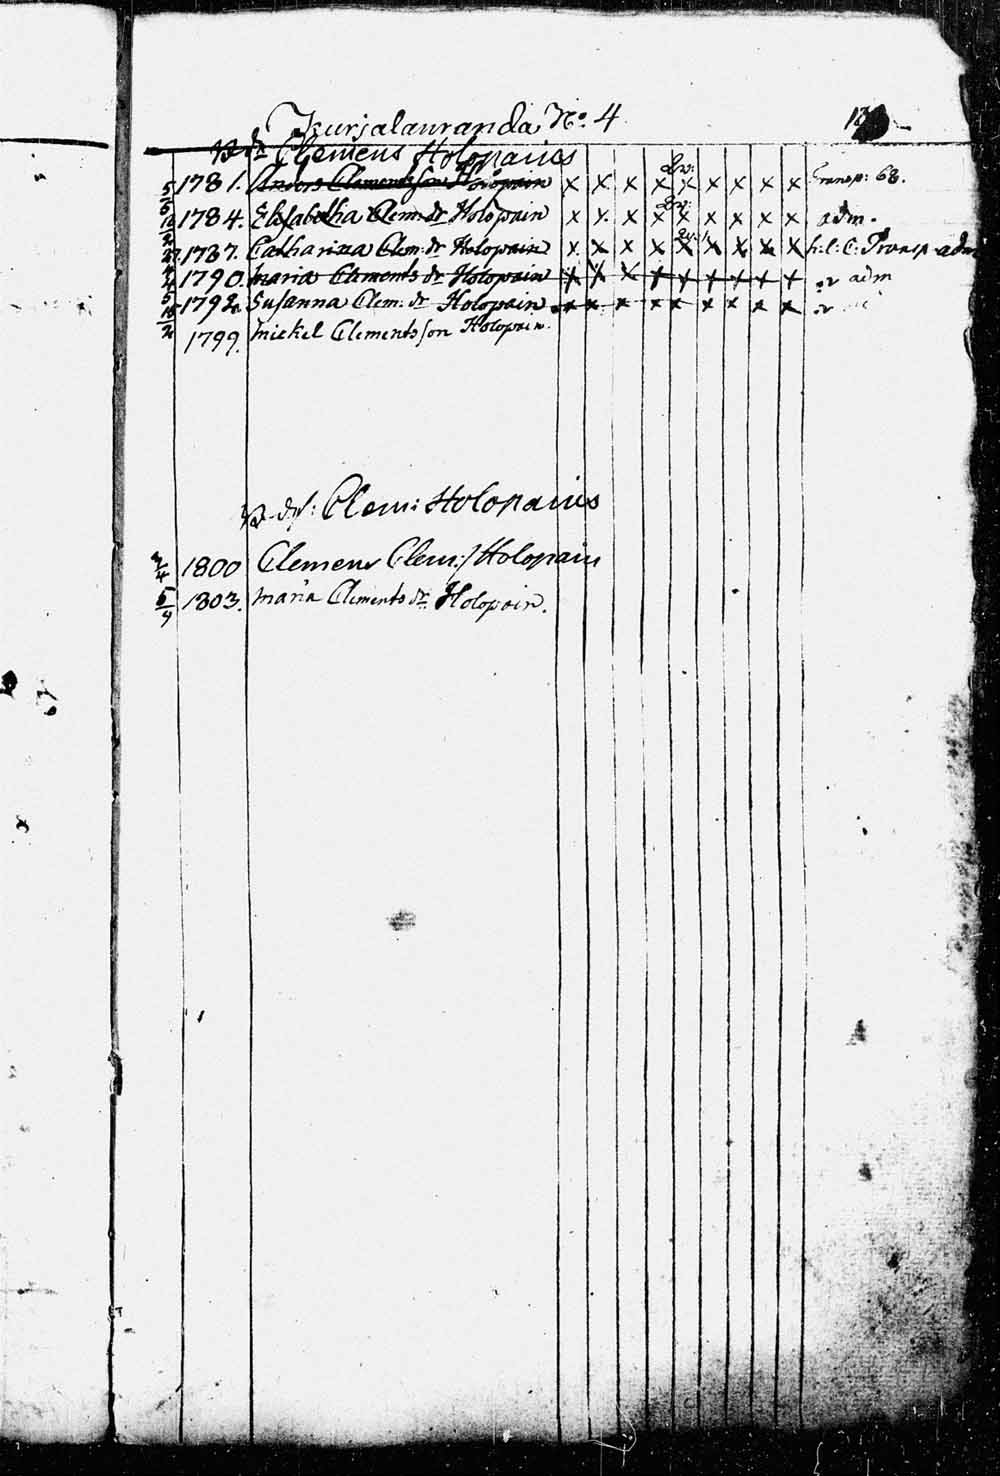 Kurjalanranda No. 4
Clemens Holopains
1781. Anders Clementsson Holopain Transp: 68.
1784. Elisabetha Clem: dr Holopain adm.
1787. Catharina Clem: dr Holopain h: l: C: Transp adm
1790. Maria Clements dr Holopain adm
1792. Susanna Clem: dr Holopain
1799. Mickel Clements son Holopain.
Clem: Holopains
3/4 1800 Clemens Clem: Holopain
5/9 1803. Maria Clements dr Holopain.